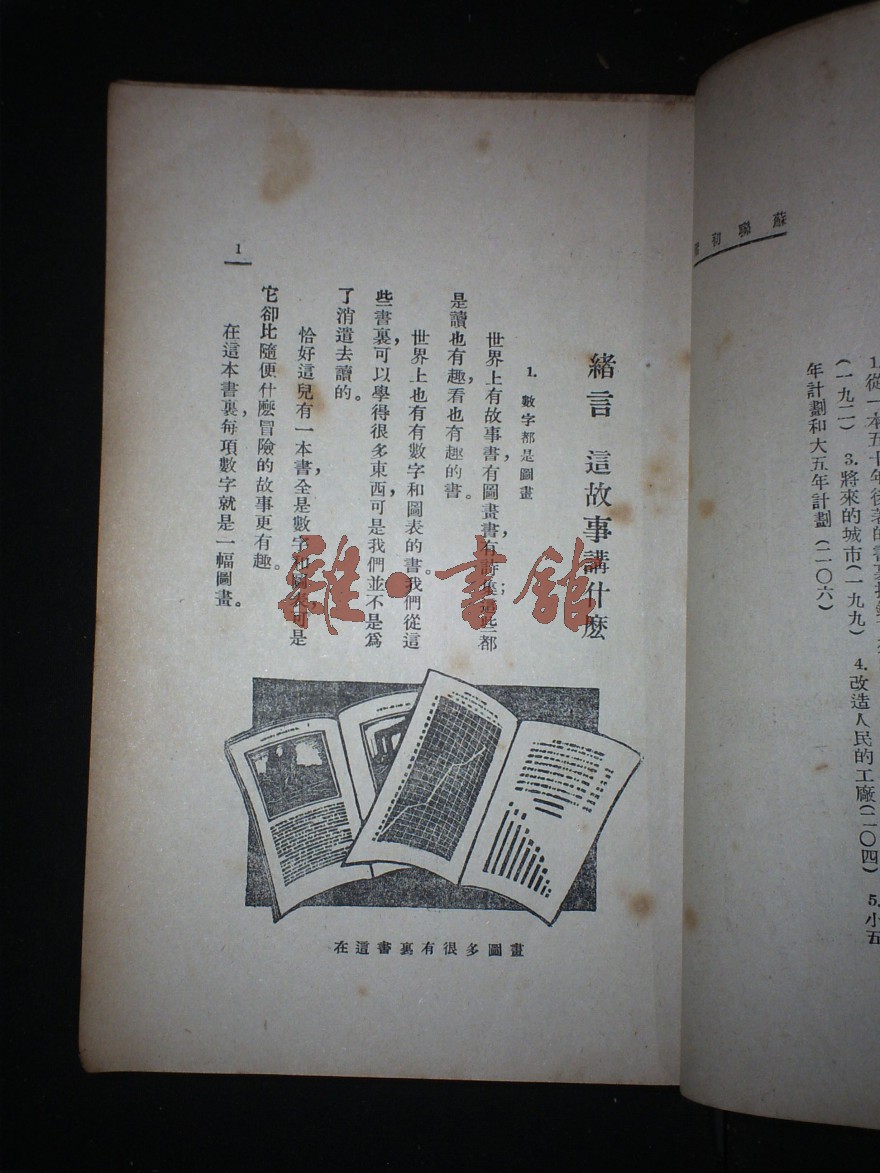 蘇聯初
1.從一本五十年後著的書裏
(一九二) 3.將來的城市(一九九) 4.改造人民的工廠(二〇四) 5.小五
年計劃和大五年計劃(二〇六)
緒言 這故事講什麼
1. 數字都是圖畫
世界上有故事書,有圖畫書,有詩集;這些都
是讀也有趣,看也有趣的書。
世界上也有有數字和圖表的書。我們從這
些書裏,可以學得很多東西,可是我們並不是爲
了消遣去讀的。
恰好這兒有一本書,全是數字和圖表,可是
它卻比隨便什麼冒險的故事更有趣。
在這本書裏,每項數字就是一幅圖畫。
1
在這書裏有很多圖畫
雜·書館